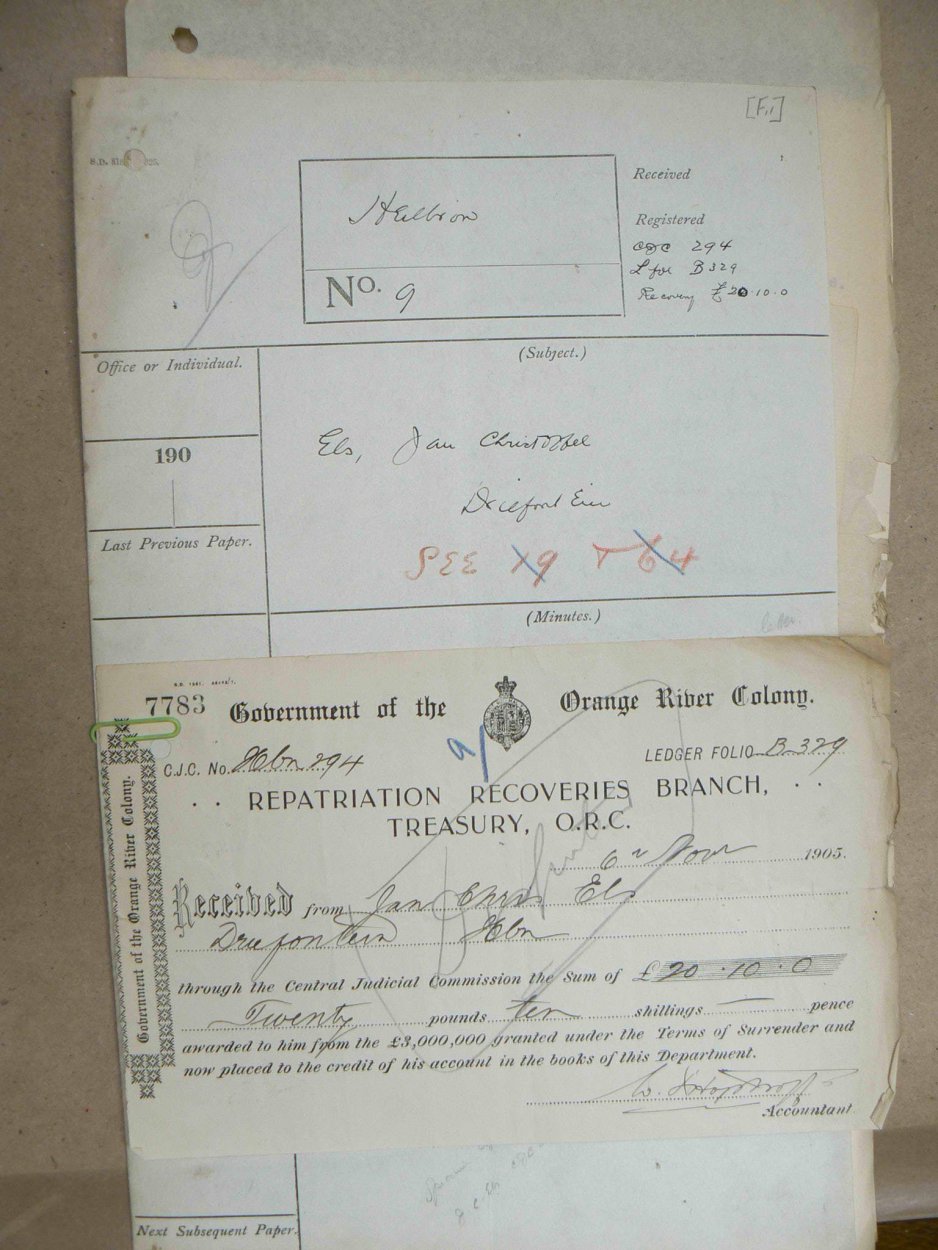 [Fi]
Received
Heilbron
Registered
CJC 294
L for B 329
Recovery £20.10.0
No. 9
(Subject.)
Office or Individual.
Els, Jan Christoffel
190
Driefontein
Last Previous Paper.
SEE 19 + 64
(Minutes.)
7783 Government of the Orange River Colony.
9/
C.J.C. No. Hbn 294 LEDGER FOLIO B 329
REPATRIATION RECOVERIES BRANCH,
TREASURY, O.R.C.
6 Nov 1905.
Received from Jan Chris Els
Driefontein Hbn
through the Central Judicial Commission the Sum of £20.10.0
Twenty pounds ten shillings — pence
awarded to him from the £3,000,000 granted under the Terms of Surrender and
now placed to the credit of his account in the books of this Department.
Accountant
Government of the Orange River Colony.
Next Subsequent Paper.